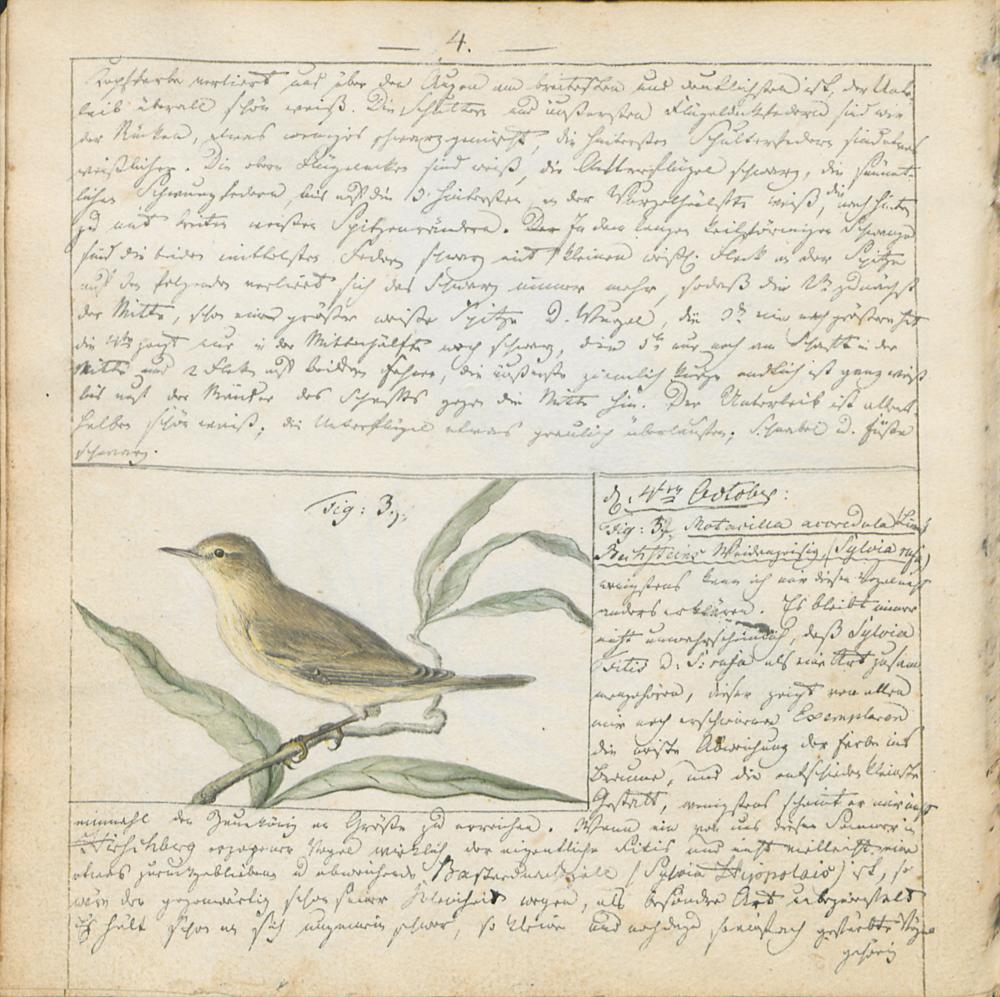 — 4. —
Kopffarbe verliert und über den Augen am breitesten und deutlichsten ist, der Unter-
leib überall schön weiß. Die Schultern und äußersten Flügeldeckfedern sind wie
der Rücken, etwas weniges schwarz gemischt, die hintersten Schulterfedern sind etwas
weißlicher. Die obern Flügelecken sind weiß, die Afterflügel schwarz, die sämmt-
lichen Schwungfedern, bis auf die 3 hintersten, an der Wurzelhälfte weiß, nach hinten
zu mit breiten weißen Spitzenrändern. In dem langen keilförmigen Schwanze
sind die beiden mittelsten Federn schwarz mit kleinem weißl. Fleck an der Spitze
auf den folgenden verliert sich das Schwarz immer mehr, sodaß die 2te zunächst
der Mitte, schon eine größere weiße Spitze u. Wurzel, die 3te eine noch größere hat
die 4te zeigt nur in der Mittenhälfte noch schwarz, die 5te nur noch am Schaft in der
Mitte und 2 Flecken auf beiden Fahnen, die äußerste ziemlich kurze endlich ist ganz weiß
bis auf die Ränder des Schafts gegen die Mitte hin. Der Unterleib ist allent-
halben schön weiß, die Unterflügel etwas graulich überlaufen, Schnabel u. Füße
schwarz.
Fig: 3.
d. 4ten October:
Fig: 3, Motacilla acredula Linn
Bechsteins Weidenzeisig, (Sylvia rufa)
wenigstens kann ich mir diesen Vogel nicht
anders erklären. Es bleibt immer
nicht unwahrscheinlich, daß Sylvia
Fitis u. S. rufa als eine Art zusam
mengehören, dieser zeigt von allen
mir noch erschienenen Exemplaren
die meiste Abweichung der Farbe ins
Braune, und die entschieden kleinste
Gestalt, wenigstens scheint er mir nicht
einmahl den Zaunkönig an Größe zu erreichen. Wenn ein von uns diesen Sommer in
Hirschberg erzogener Vogel wirklich der eigentliche Fitis und nicht vielleicht eine
etwas zurückgebliebene u abweichende Bastardnachtigall (Sylvia Hippolais) ist, so
wäre der gegenwärtig schon seiner Kleinheit wegen, als besondre Art
Es hält schon an sich ungemein schwer, so kleine und noch dazu so einfach gefärbte Vögel
gehörig